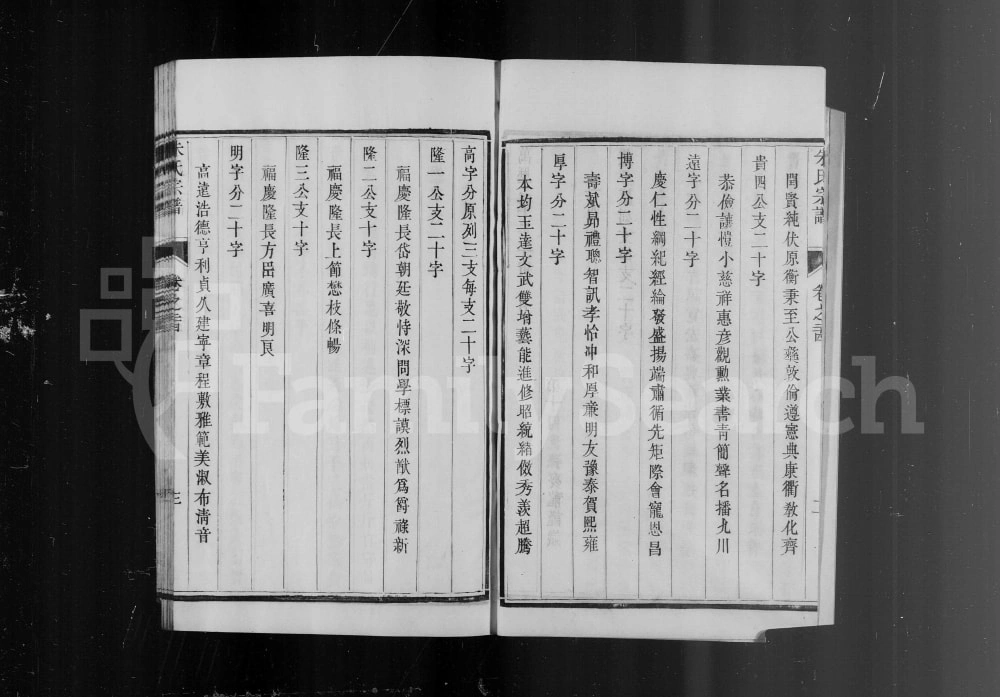 朱氏宗譜
卷之首
二
閏賢純伏原衡秉至公蘊敦倫遵憲典康衢敎化齊
貴四公支二十字
恭儉謙愷小慈祥惠彥觀勲業書青簡聲名播九州
遠字分二十字
慶仁性綱紀經綸發盛揚端肅循先矩際會寵恩昌
博字分二十字
壽斌昻禮聰智訊孝怡冲和厚兼明友豫泰賀熙雍
厚字分二十字
本均玉達文武雙增藝能進修昭統緒倣秀羨超騰
高字分原列三支每支二十字
隆一公支二十字
福慶隆長岱朝廷敬恃深問學標謨烈猷爲爵祿新
隆二公支十字
福慶隆長上節懋枝條暢
隆三公支十字
福慶隆長方啚廣喜明良
明字分二十字
高遠浩德亨利貞久建寧章程敷雅範美淑布淸音
朱氏宗譜
卷之首
三
FamilySearch